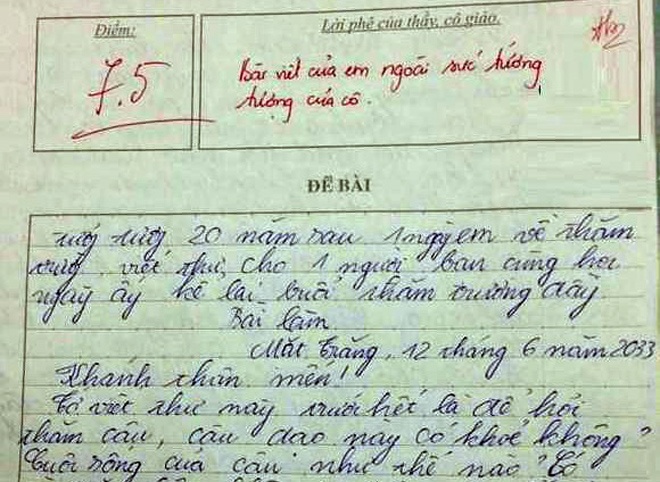 Điểm:
Lời phê của thầy, cô giáo.
7.5
Bài viết của em ngoài sức tưởng
tượng của cô.
ĐỀ BÀI
20 năm sau 1 ngày em về thăm
trường, viết thư cho 1 người bạn cùng học
ngày ấy kể lại buổi thăm trường đầy
Bài làm
Mặt trăng, 12 tháng 6 năm 2033
Khanh thân mến!
Tớ viết thư này trước hết là để hỏi
thăm cậu, cậu dạo này có khoẻ không?
Cuộc sống của cậu như thế nào? Có